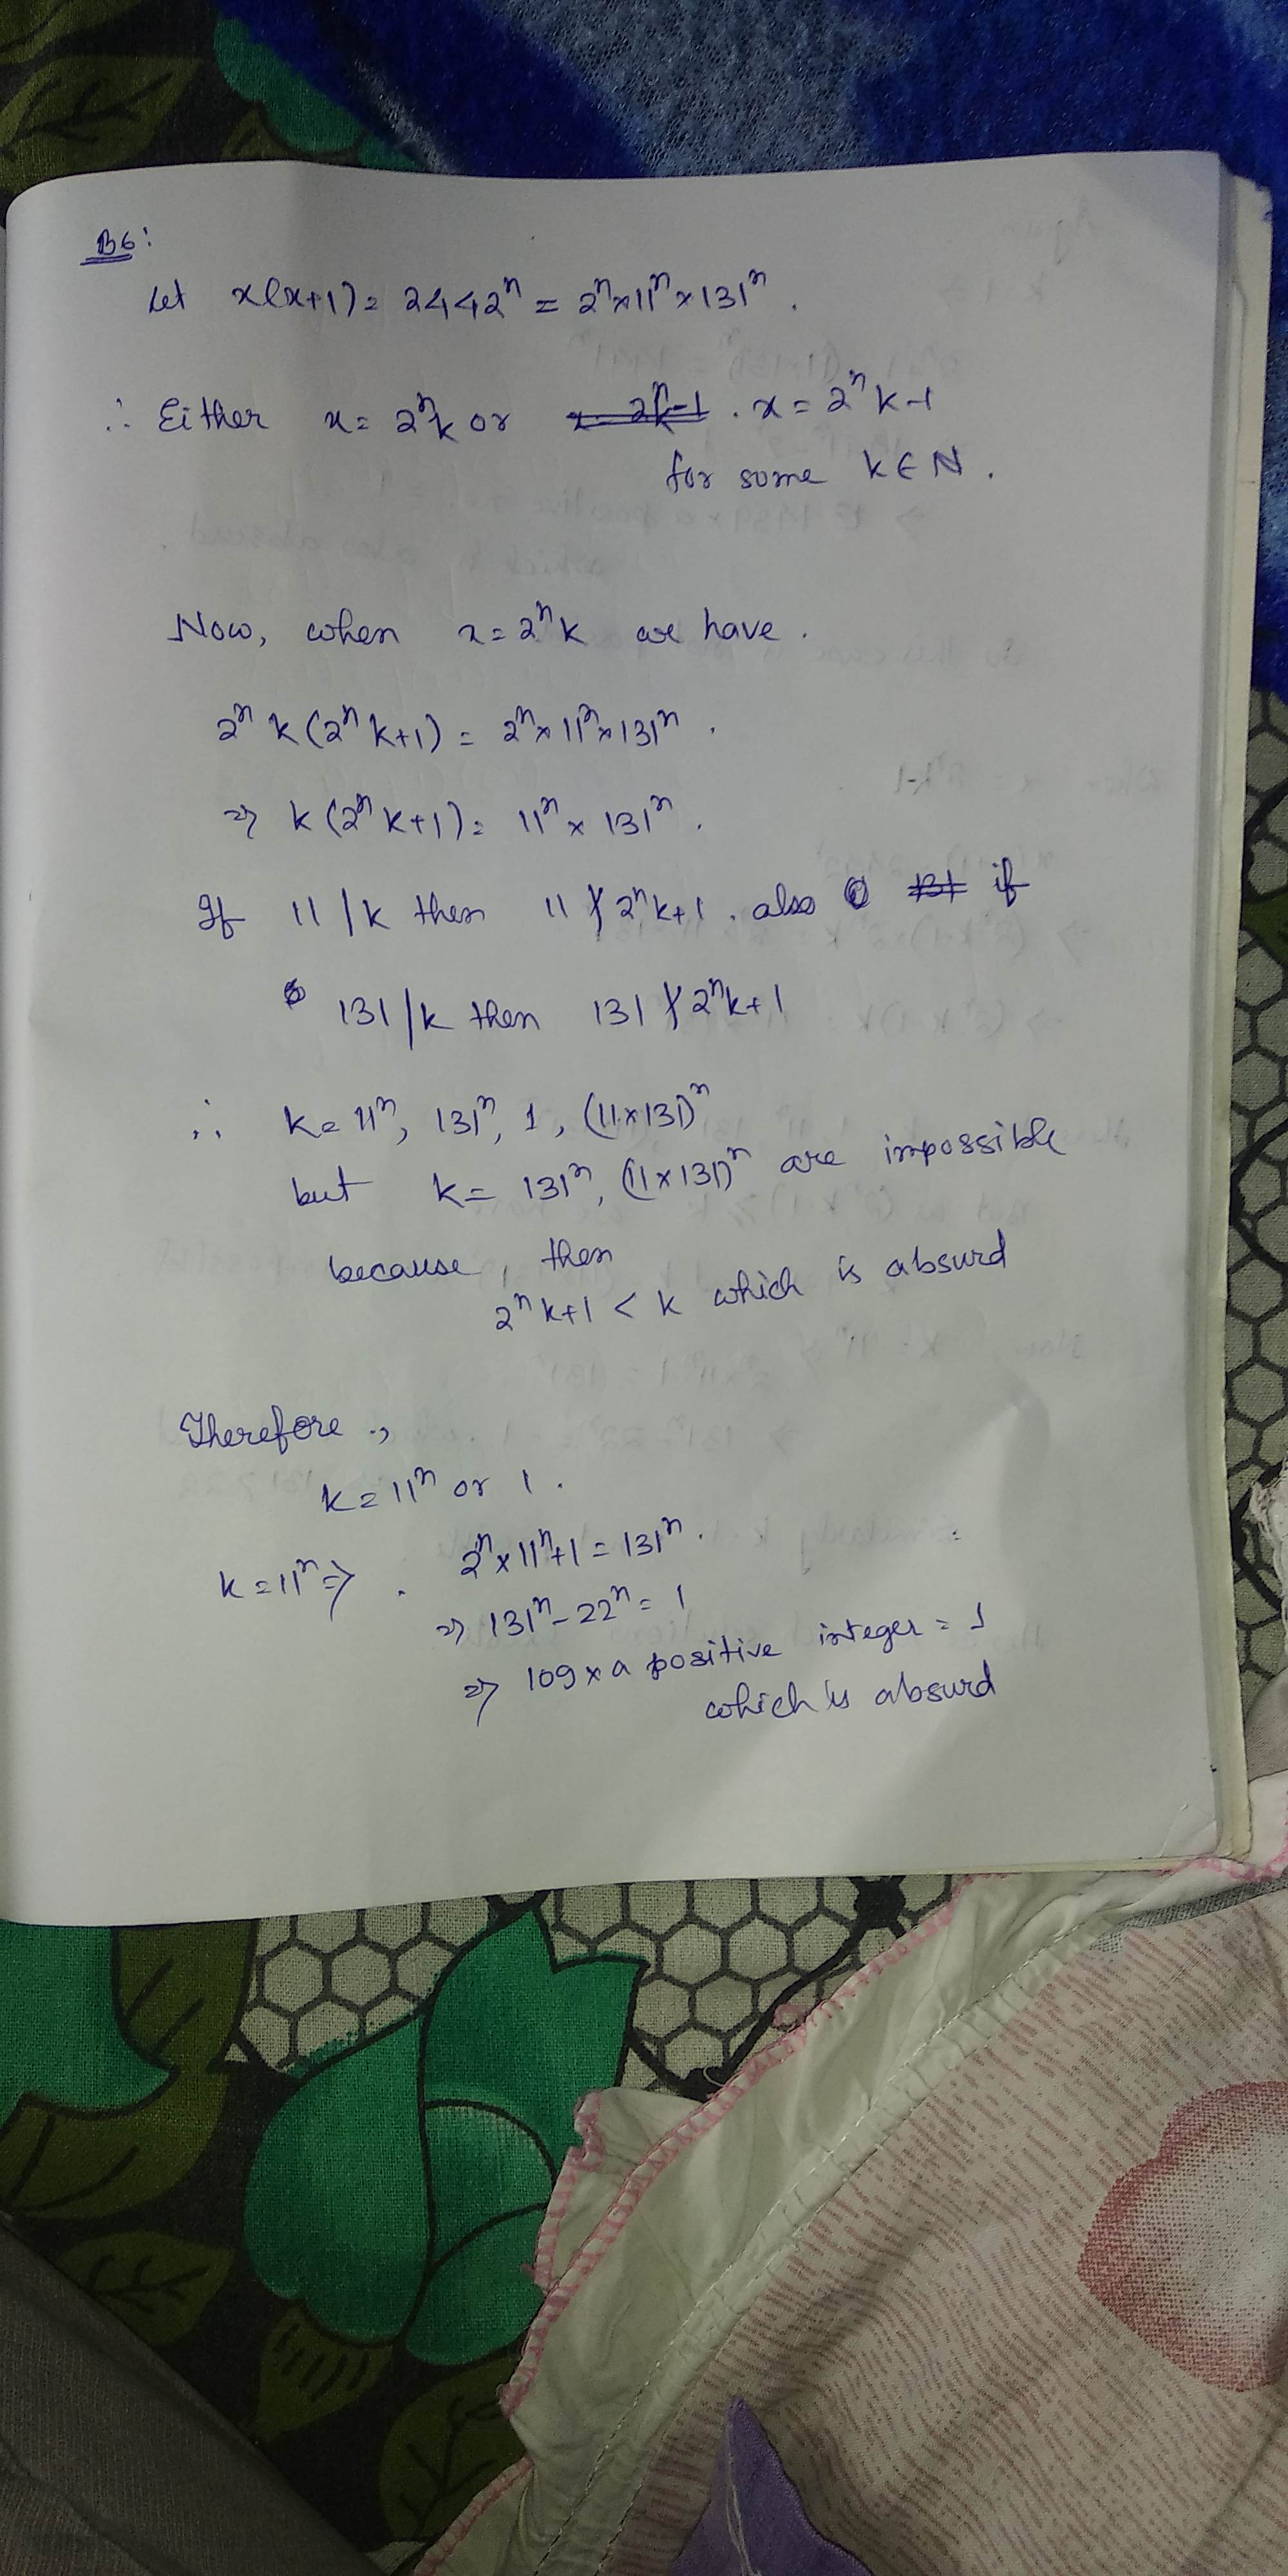 B6:
Let x(x+1) = 2442ⁿ = 2ⁿ×11ⁿ×131ⁿ.
∴ Either x = 2ⁿk or x = 2ⁿk-1
for some k ∈ N.
Now, when x = 2ⁿk we have.
2ⁿ k(2ⁿ k+1) = 2ⁿ×11ⁿ×131ⁿ.
⇒ k(2ⁿ k+1) = 11ⁿ × 131ⁿ.
If 11 | k then 11 ∤ 2ⁿk+1. also if
131 | k then 131 ∤ 2ⁿk+1
∴ k = 11ⁿ, 131ⁿ, 1, (11×131)ⁿ
but k = 131ⁿ, (11×131)ⁿ are impossible
because, then
2ⁿ k+1 < k which is absurd
Therefore,
k = 11ⁿ or 1.
k = 11ⁿ ⇒ . 2ⁿ×11ⁿ+1 = 131ⁿ.
⇒ 131ⁿ - 22ⁿ = 1
⇒ 109 × a positive integer = 1
which is absurd